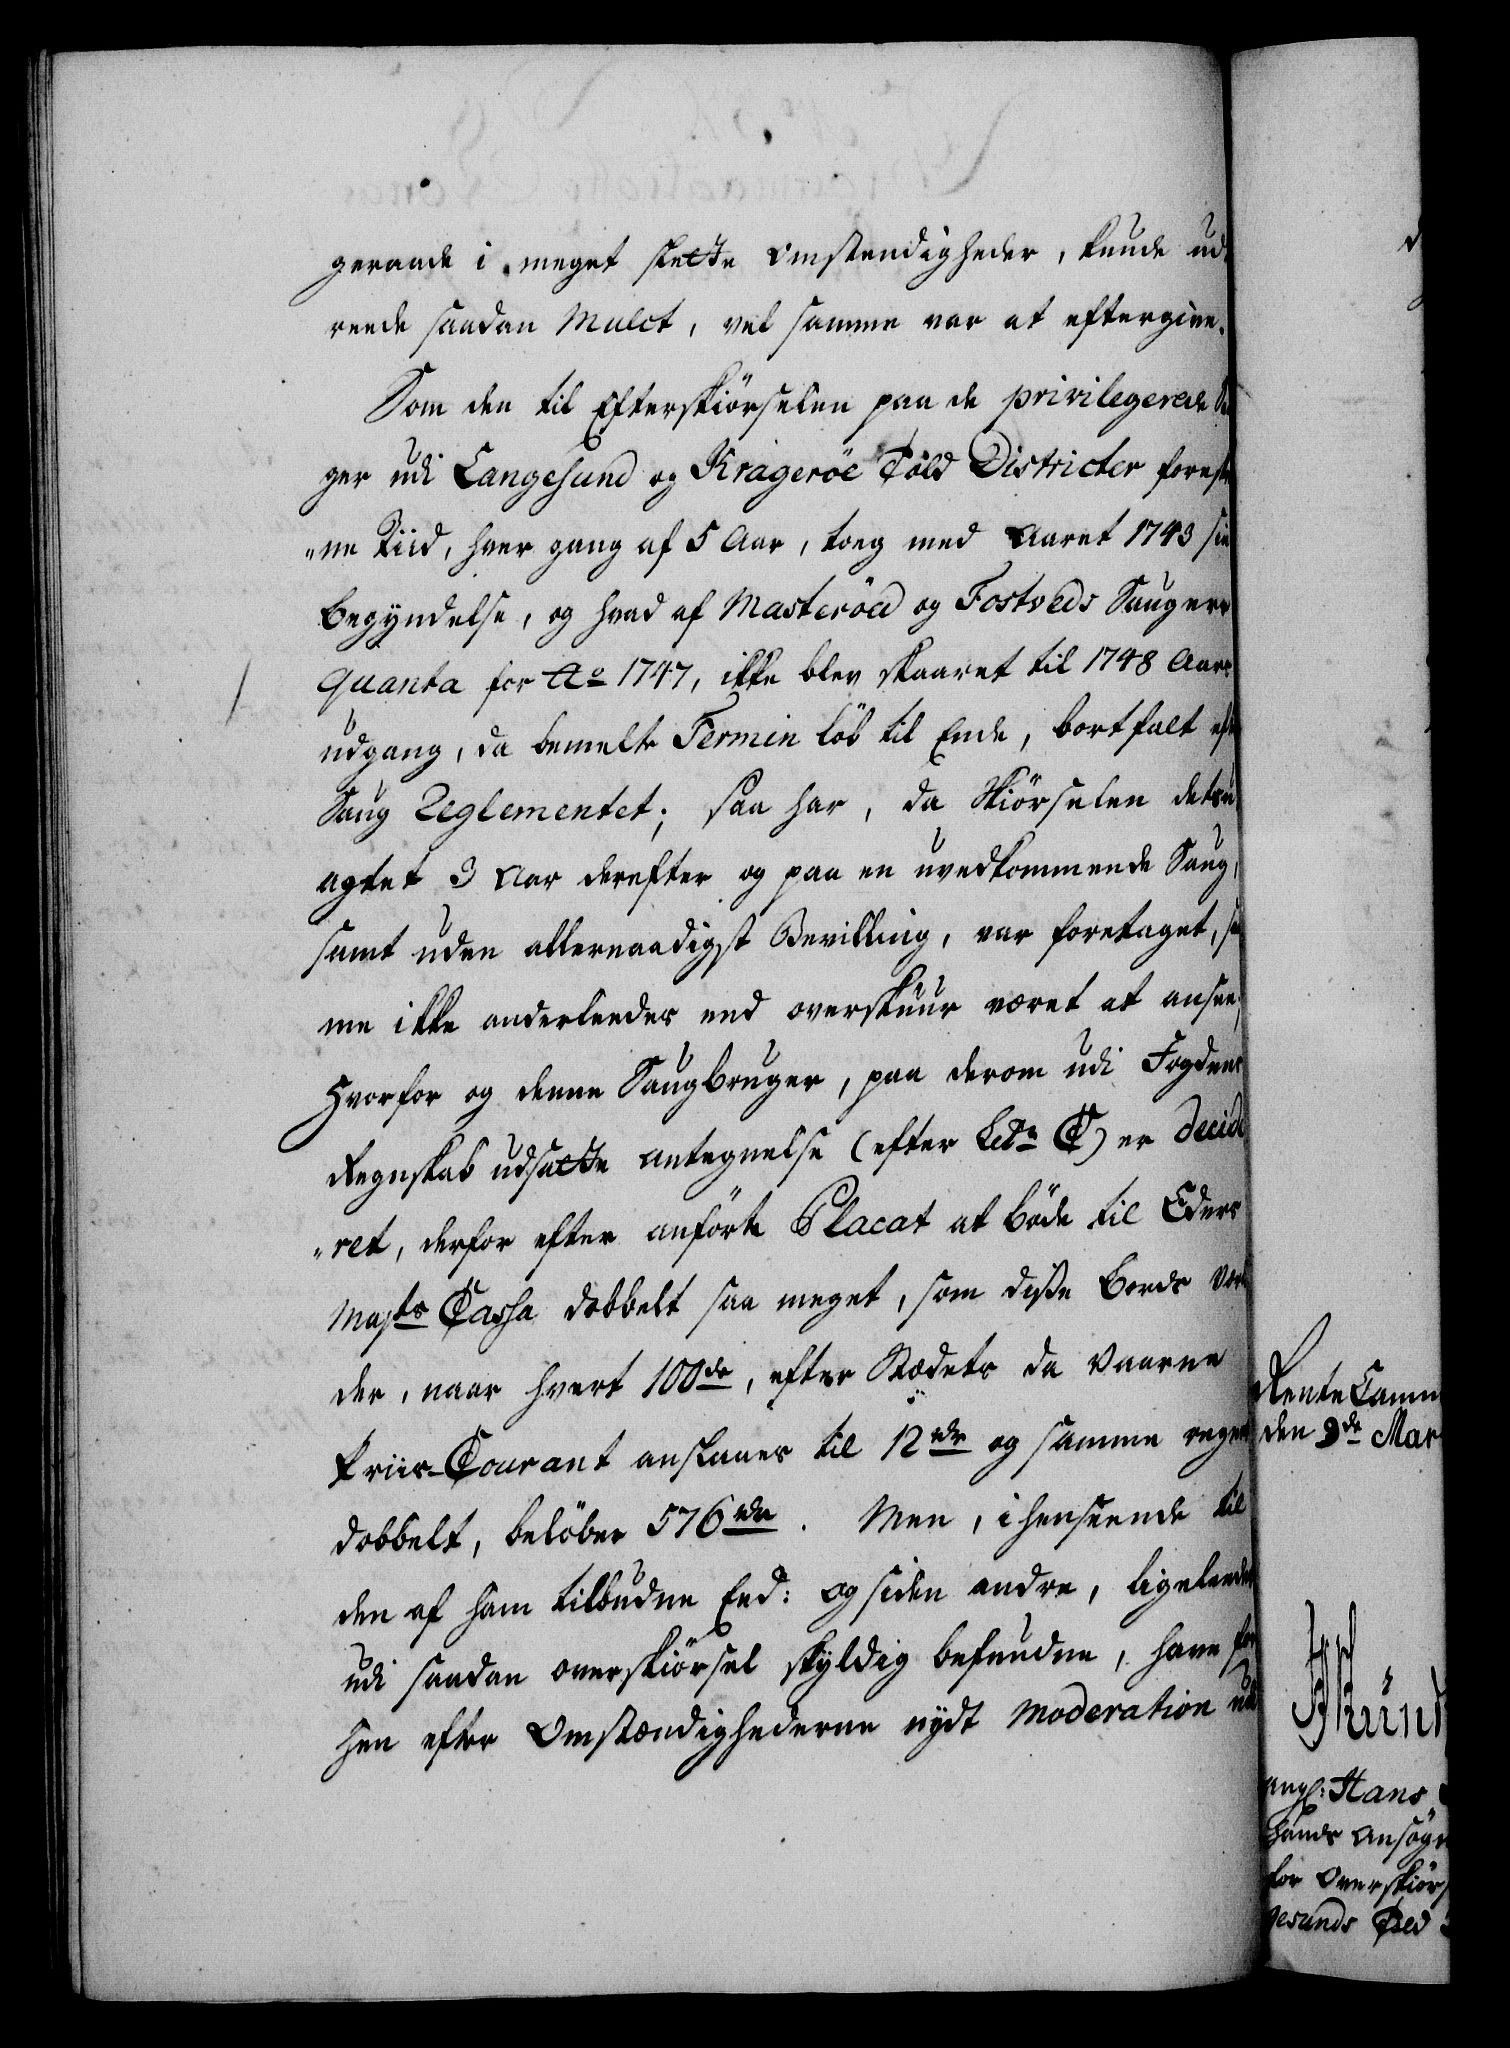 geraade i meget slette Omstendigheder, kunde ud-
reede saadan Mulct, vel samme var at eftergive.
Som den til Efterskiörselen paa de privilegerede
ger udi Langesund og Kragerøe Told Districter
„ne Tiid, hver gang af 5 Aar, toeg med Aaret 1743 sin
begÿndelse, og hvad af Masteröed og Fostveds Saugers
Quanta for Ao 1747, ikke blev skaaret til 1748 Aars
udgang, da bemelte Termin löb til Ende, bortfalt efter
Saug Reglementet; saa har, da Skiörselen
agtet 3 Aar derefter og paa en uvedkommende Saug,
samt uden allernaadigst Bevilling, var foretaget,
me ikke anderleedes end overskuur været at ansee,
Hvorfor og denne Saugbruger, paa derom udi Fogdens
Regnskab udsatte Antegnelse (efter Litr C) er decide
„ret, derfor efter anförte Placat at böde til Eders
Majts Cassa dobbelt saa meget, som disse Bords Vær
der, naar hvert 100de, efter Stædets da Vaarne
Priis-Courant anslaaes til 12 rdr og samme regnes
dobbelt, belöber 576 rdr. Men, i henseende til
den af ham tilbudne Eed: og siden andre, ligeleedes
udi saadan overskiörsel skÿldig befundne, have for
hen efter Omstændighederne nÿdt Moderation udi
Rente Camm
den 9de Mar
ang: Hans
hands Ansøgn
for Overskiörs
gesunds